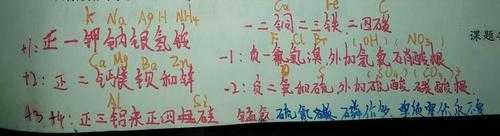 K Na Ag H NH₄
+1: 正一钾钠银氢铵
Ca Mg Ba Zn
+2: 正二钙镁钡和锌
Al Si
+3、+4: 正三铝来正四硅
Cu Fe C
一二铜二三铁 二四碳
F Cl Br (OH) (NO₃)
-1: 负一氟氯溴,外加氢氧硝酸根
O S (SO₄) (CO₃)
-2: 负二氧和硫,外加硫酸碳酸根
单质零价永不变
课题4